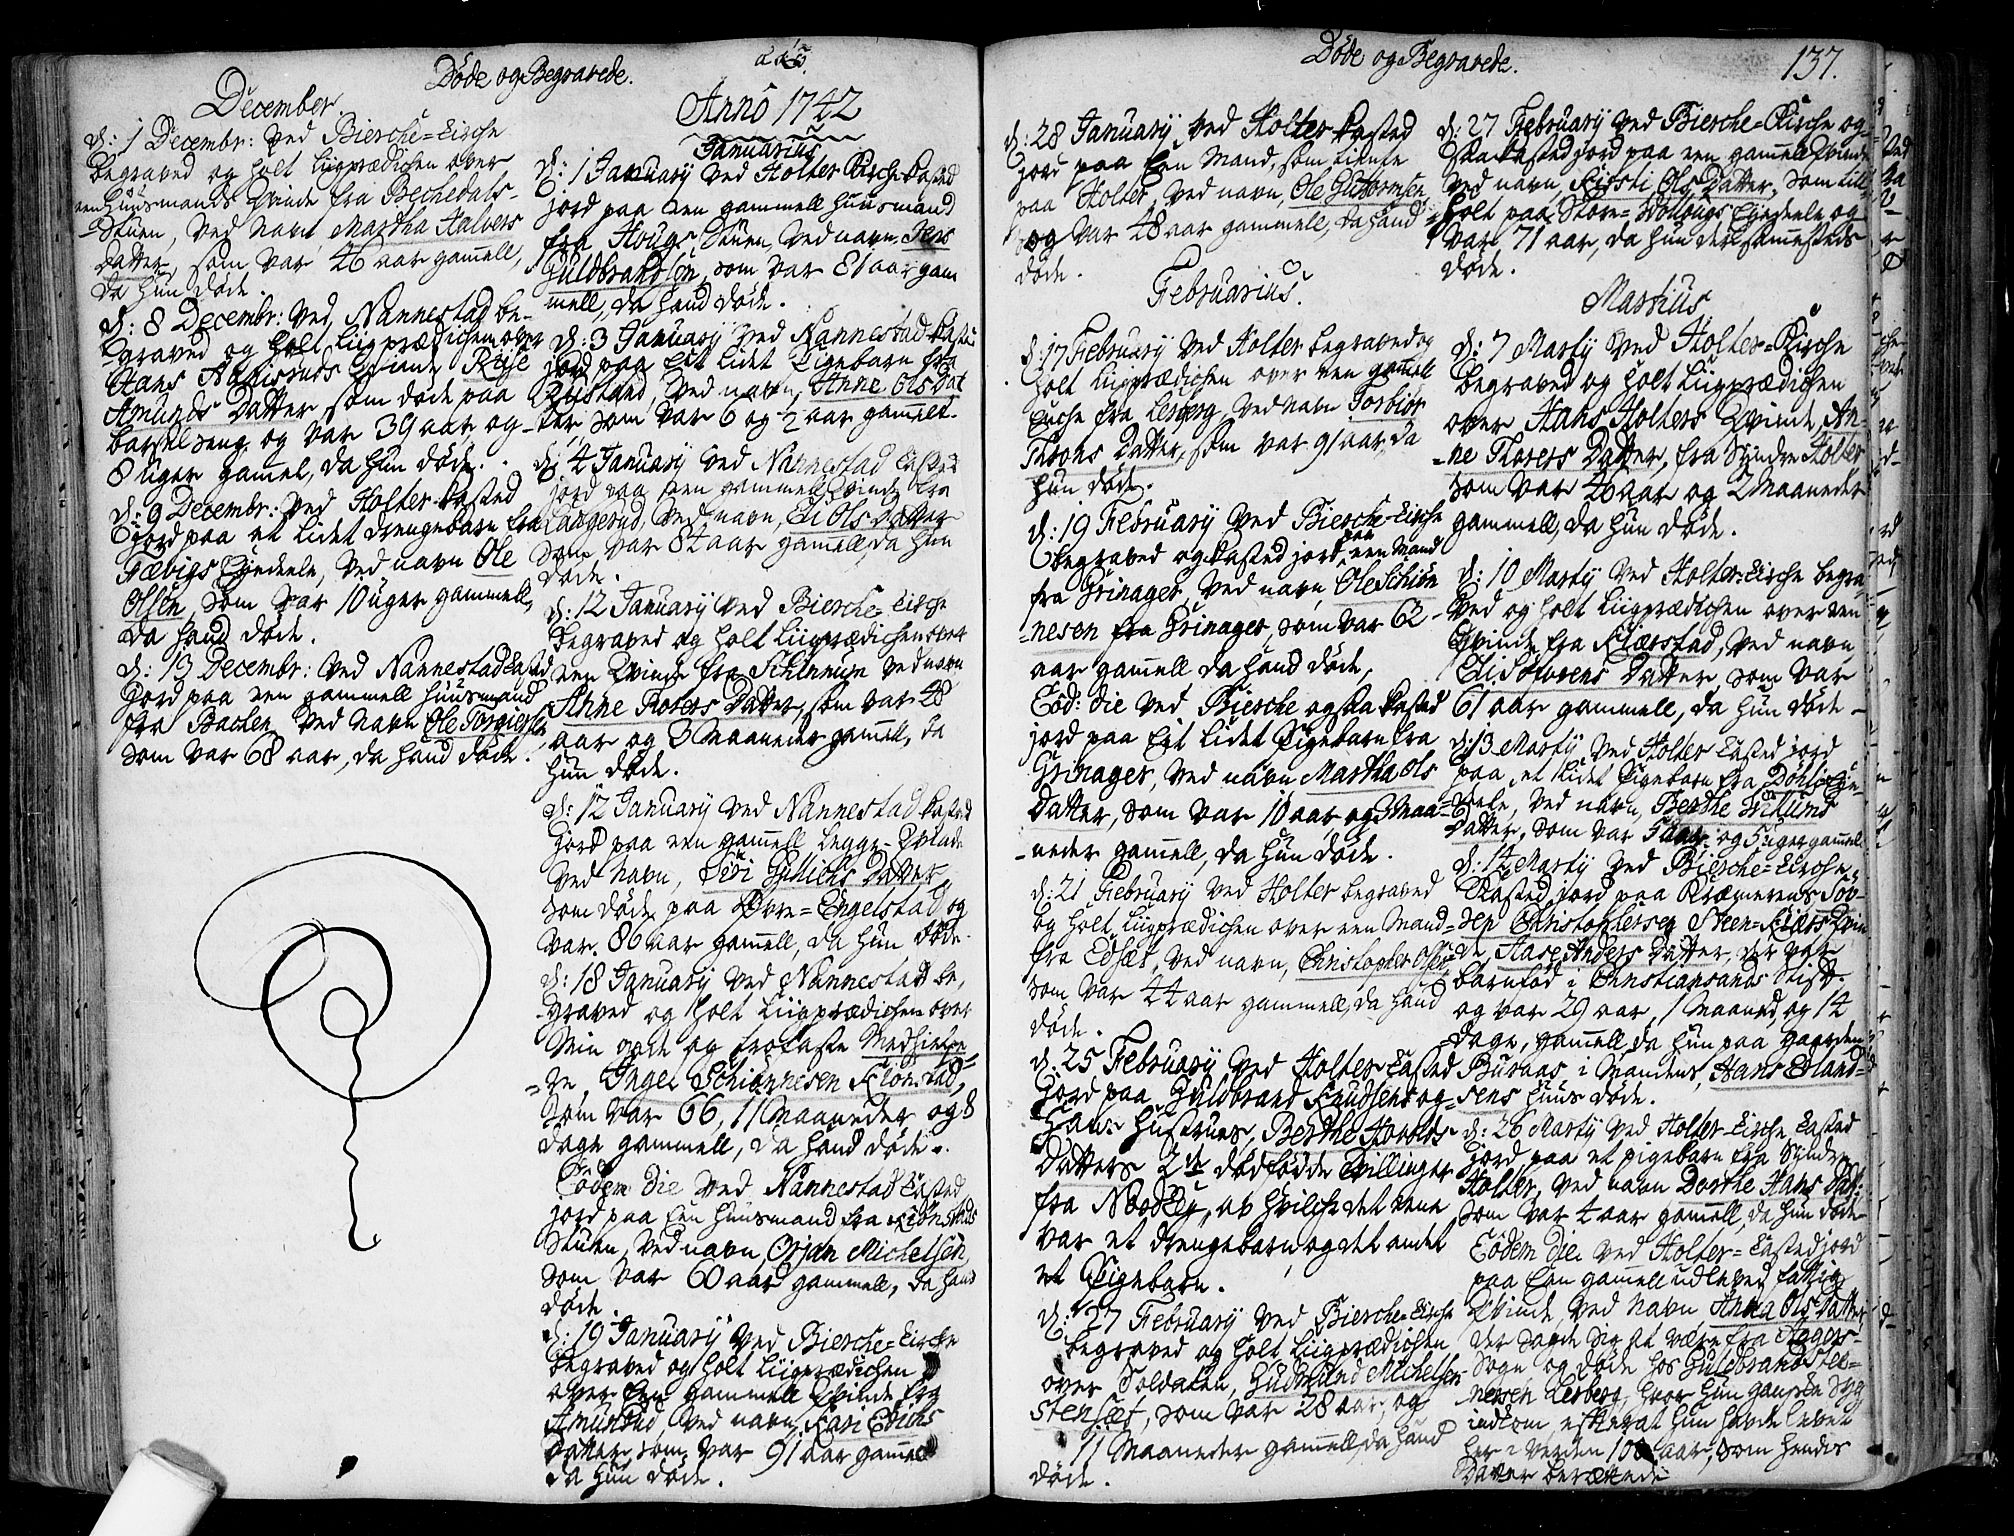 Döde og Begravede.
December.
d: 1 Decembr: ved Bierche=Kirche
begraved og holt Liigprædichen over
een huusmands Qvinde fra Bechedals-
=Stuen, ved Navn Martha Halvers
Datter, som var 46 aar gamell,
da hun döde.
d: 8 Decembr: ved Nannestad be-
graved og holt Liigprædichen over
Hans Qvinde Røise
Amunds Datter, som döde paa
barsel seng, og var 39 aar og
8 uger gamel, da hun döde.
d: 9 Decembr: ved Holter kasted
jord paa et lidet drengebarn fra
Fæbigs Eyedeele, ved navn Ole
Olsen, som var 10 uger gammell,
da hand döde.
d: 13 Decembr: ved Nannestad kasted
jord paa een gammell huusmand
fra Bachen, ved navn Ole Torgiersen
som var 68 aar, da hand döde.
Anno 1742
Januarius
d: 1 January ved Holter Kirche kasted
jord paa een gammell huusmand
fra Hougs Stuen, ved navn Jens
Guldbrandsen, som var 81 aar gam
mell, da hand döde.
d: 3 January ved Nannestad kasted
jord paa Eet lidet Pigebarn fra
ved navn, Anne Ols Dat
ter som var 6 og ½ aar gamell.
d: 4 January ved Nannestad kasted
jord paa een gammell Qvinde fra
ved navn, Eli Ols Datter
som var 84 aar gamell, da hun
döde.
d: 12 January ved Bierche=Kirche
begraved og holt Liigprædichen over
een Qvinde fra ved navn
Anne Datter, som var 48
aar og 3 Maaneder gamell, da
hun döde.
d: 12 January ved Nannestad kasted
jord paa een gamell Legge-Qvinde
ved navn, Siri Gullichs Datter
som döde paa Øvre=Engelstad og
var 86 aar gamell, da hun döde.
d: 18 January ved Nannestad be-
graved og holt Liigprædichen over
Min gode og trofaste Medhielpe
=re, Inger Schiönnesen Klonstad,
som var 66, 11 Maaneder og 8
dage gammell, da hand döde.
Eodem die ved Nannestad kasted
jord paa Een huusmand fra Klonstads
Stuen, ved navn, Örjan Michelsen
som var 60 aar gammell, da hand
döde.
d: 19 January ved Bierche=Kirche
begraved og holt Liigprædichen
over Een gammell Qvinde fra
Amustad, ved navn, Kari Erichs
Datter, som var 91 aar gamell
da hun döde.
Döde og Begravede.
137.
d: 28 January ved Holter kasted
jord paa Een Mand, som tiente
paa Holter, ved navn, Ole Guttormsen
og var 48 aar gammell, da hand
döde.
Februarius.
d: 17 February ved Holter begraved og
holt Liigprædichen over een gamell
Enche fra Lesberg, ved navn Torbiör
Datter, som var 91 aar, da
hun döde.
d: 19 February ved Bierche=Kirche
begraved og kasted jord paa een Mand
fra Grinager, ved navn, Ole Schiön
=nesen fra Grinager, som var 62
aar gamell da hand döde,
Eod: die ved Bierche ogsaa kasted
jord paa Eet lidet Pigebarn fra
Grinager, ved navn Martha Ols
Datter, som var 10 aar, og 3 Maa-
=neder gamell, da hun döde.
d: 21 February ved Holter begraved
og holt Liigprædichen over een Mand
fra Edsæt, ved navn, Christopher Olsen
som var 44 aar gammell, da hand
döde.
d: 25 February ved Holter kasted
jord paa Guldbrand Knudsens og
Hans Hustrues, Berthe
Datters 2de dödfødde Tvillinger
fra af hvilche det eene
var et drengebarn, og det andet
et Pigebarn.
d: 27 February ved Bierche=Kirche
begraved og holt Liigprædichen
over Soldaten, Gudmund Michelsen
Stensæt, som var 28 aar, og
11 Maaneder gamell, da hand
döde.
d: 27 February ved Bierche=Kirche og-
saa kasted jord paa een gamell Qvinde
ved navn, Kirsti Ols Datter, som till
holt paa Store= Eyedeele og
var 71 aar, da hun der sammesteds
döde.
Martius
d: 7 Marty ved Holter=Kirche
begraved og holt Liigprædichen
over Hans Holters Qvinde, An-
=ne Thorers Datter, fra Syndre Holter
som var 46 aar og 2 Maaneder
gamell, da hun döde.
d: 10 Marty ved Holter=Kirche begra-
ved og holt Liigprædichen over een
Qvinde fra Kierstad, ved navn
Eli Datter, som var
61 aar gamell, da hun döde
d: 13 Marty ved Holter kasted jord
paa et lidet Pigebarn fra
=deele, ved navn, Berthe
Datter, som var 5 aar og 5 uger gamell
d: 14 Marty ved Bierche=Kirche
kasted jord paa Kræmerens Sör-
=en Christophersen Steen=Kiærs Qvin
de, Aase Anders Datter, der var
barnföd i Christiansands Stift
og var 29 aar, 1 Maaned, og 14
dage, gamell, da hun paa Gaarden
Buraas i Mandens, Hans Erland-
sens huus döde.
d: 26 Marty ved Holter=Kirche kasted
jord paa et pigebarn fra Syndre
Holter, ved navn Dorthe Hans Datt:
som var 4 aar gamell, da hun döde
Eodem die ved Holter= kasted jord
paa Een gamell udleved fattig
Qvinde, ved navn, Anna Ols Datter
der sagde sig at være fra Aggers-
Sogn og döde hos Guldbrand
Lesberg, hvor hun ganske syg
indkom, efter at hun hafde levet
her i verden 108 aar, som hendes
Datter berættede